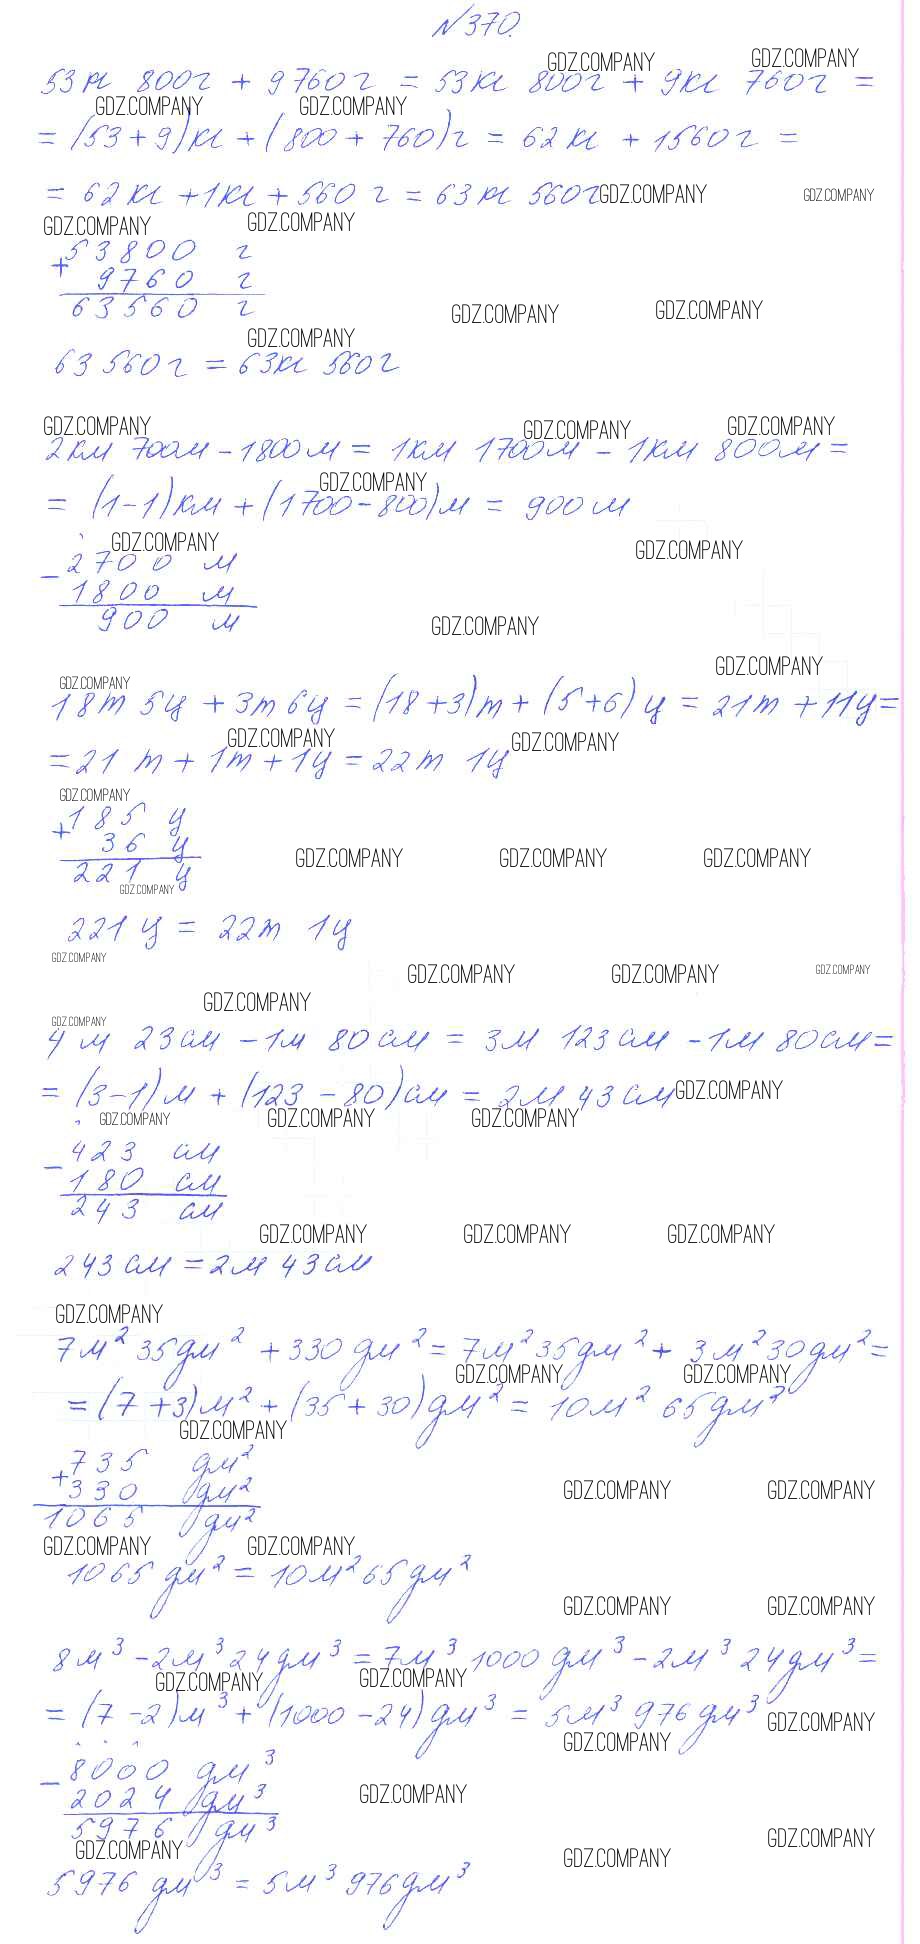 №370.
53кг 800г + 9760г = 53кг 800г + 9кг 760г =
= (53+9)кг + (800 + 760)г = 62кг + 1560г =
= 62кг + 1кг + 560г = 63кг 560г
+ 53800 г
9760 г
63560 г
63 560г = 63кг 560г
2км 700м - 1800м = 1км 1700м - 1км 800м =
= (1-1)км + (1700-800)м = 900м
- 2700 м
1800 м
900 м
18т 5ц + 3т 6ц = (18+3)т + (5+6)ц = 21т + 11ц =
= 21 т + 1т + 1ц = 22т 1ц
+ 185 ц
36 ц
221 ц
221 ц = 22т 1ц
4 м 23см - 1м 80см = 3м 123см - 1м 80см =
= (3-1)м + (123 - 80)см = 2м 43см
- 423 см
180 см
243 см
243см = 2м 43см
7м² 35дм² + 330дм² = 7м² 35дм² + 3м² 30дм² =
= (7+3)м² + (35+30)дм² = 10м² 65дм²
+ 735 дм²
330 дм²
1065 дм²
1065 дм² = 10м² 65дм²
8м³ - 2м³ 24дм³ = 7м³ 1000дм³ - 2м³ 24дм³ =
= (7-2)м³ + (1000-24)дм³ = 5м³ 976дм³
- 8000 дм³
2024 дм³
5976 дм³
5976 дм³ = 5м³ 976дм³
GDZ.COMPANY